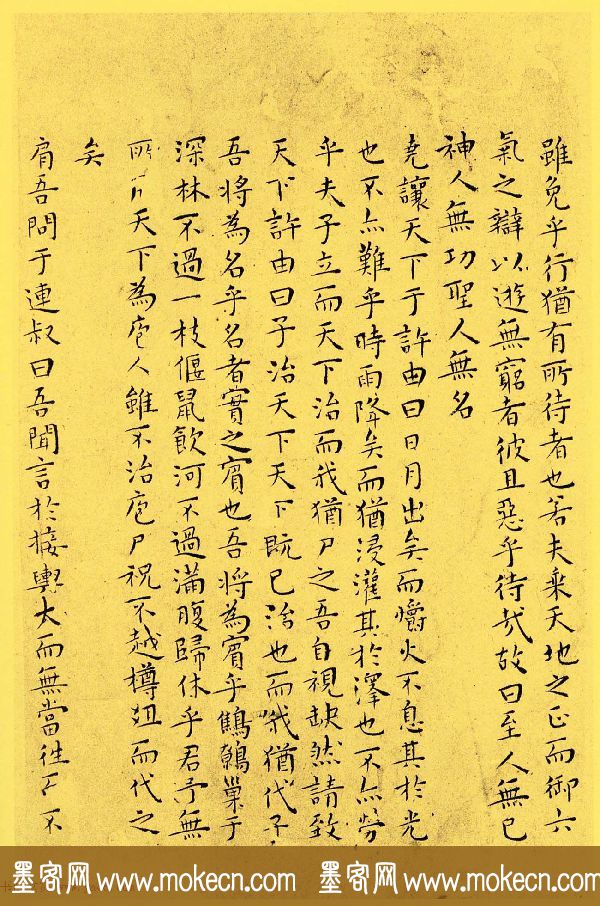 雖免乎行猶有所待者也若夫乘天地之正而御六
氣之辯以遊無窮者彼且惡乎待哉故曰至人無己
神人無功聖人無名
堯讓天下于許由曰日月出矣而爝火不息其於光
也不亦難乎時雨降矣而猶浸灌其於澤也不亦勞
乎夫子立而天下治而我猶尸之吾自視缺然請致
天下許由曰子治天下天下既已治也而我猶代子
吾將為名乎名者實之賓也吾將為賓乎鷦鷯巢于
深林不過一枝偃鼠飲河不過滿腹歸休乎君予無
所天下為庖人雖不治庖尸祝不越樽俎而代之
矣
肩吾問于連叔曰吾聞言於接輿大而無當往不
墨客网 www.mokecn.com 墨客网 www.mokecn.com